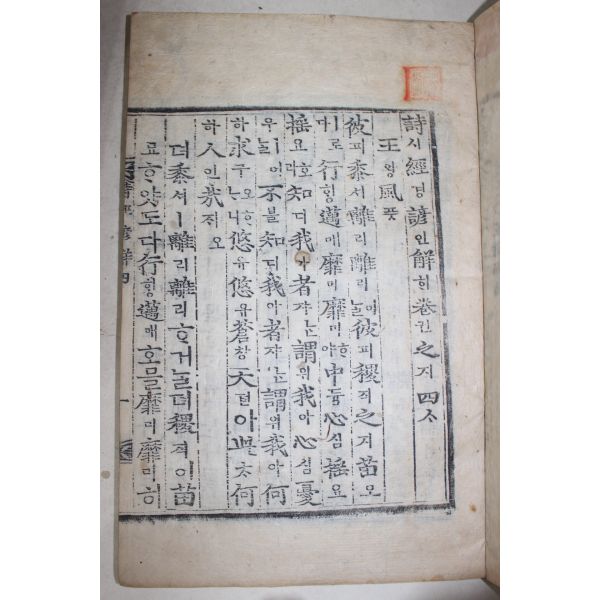 詩시經경諺언解ᄒᆡ卷권之지四ᄉᆞ
王왕風풍
彼피黍셔離리離리어ᄂᆞᆯ彼피稷직之지苗묘
ㅣ로다行ᄒᆡᆼ邁매靡미靡미ᄒᆞ야中듕心심搖요
搖요호라知디我아者쟈ᄂᆞᆫ謂위我아心심憂
우ㅣ어ᄂᆞᆯ不블知디我아者쟈ᄂᆞᆫ謂위我아何
하求구오ᄒᆞᄂᆞ니悠유悠유蒼창天텬아此ᄎᆞ何
하人인哉ᄌᆡ오
뎌黍셔ㅣ離리離리ᄒᆞ거ᄂᆞᆯ뎌稷직이苗
묘ᄒᆞ얏도다行ᄒᆡᆼ邁매호믈靡미靡미히
詩經諺解四 一